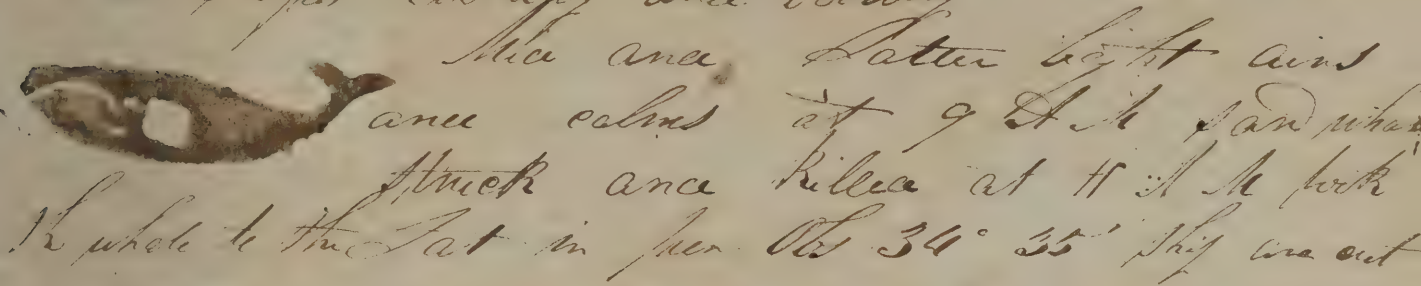 Mid and Latter light airs
and calms at 9 A M saw whale
struck and killed at 11 A M took
the whale to the Lat in per Obs 34° 35' ship and cut